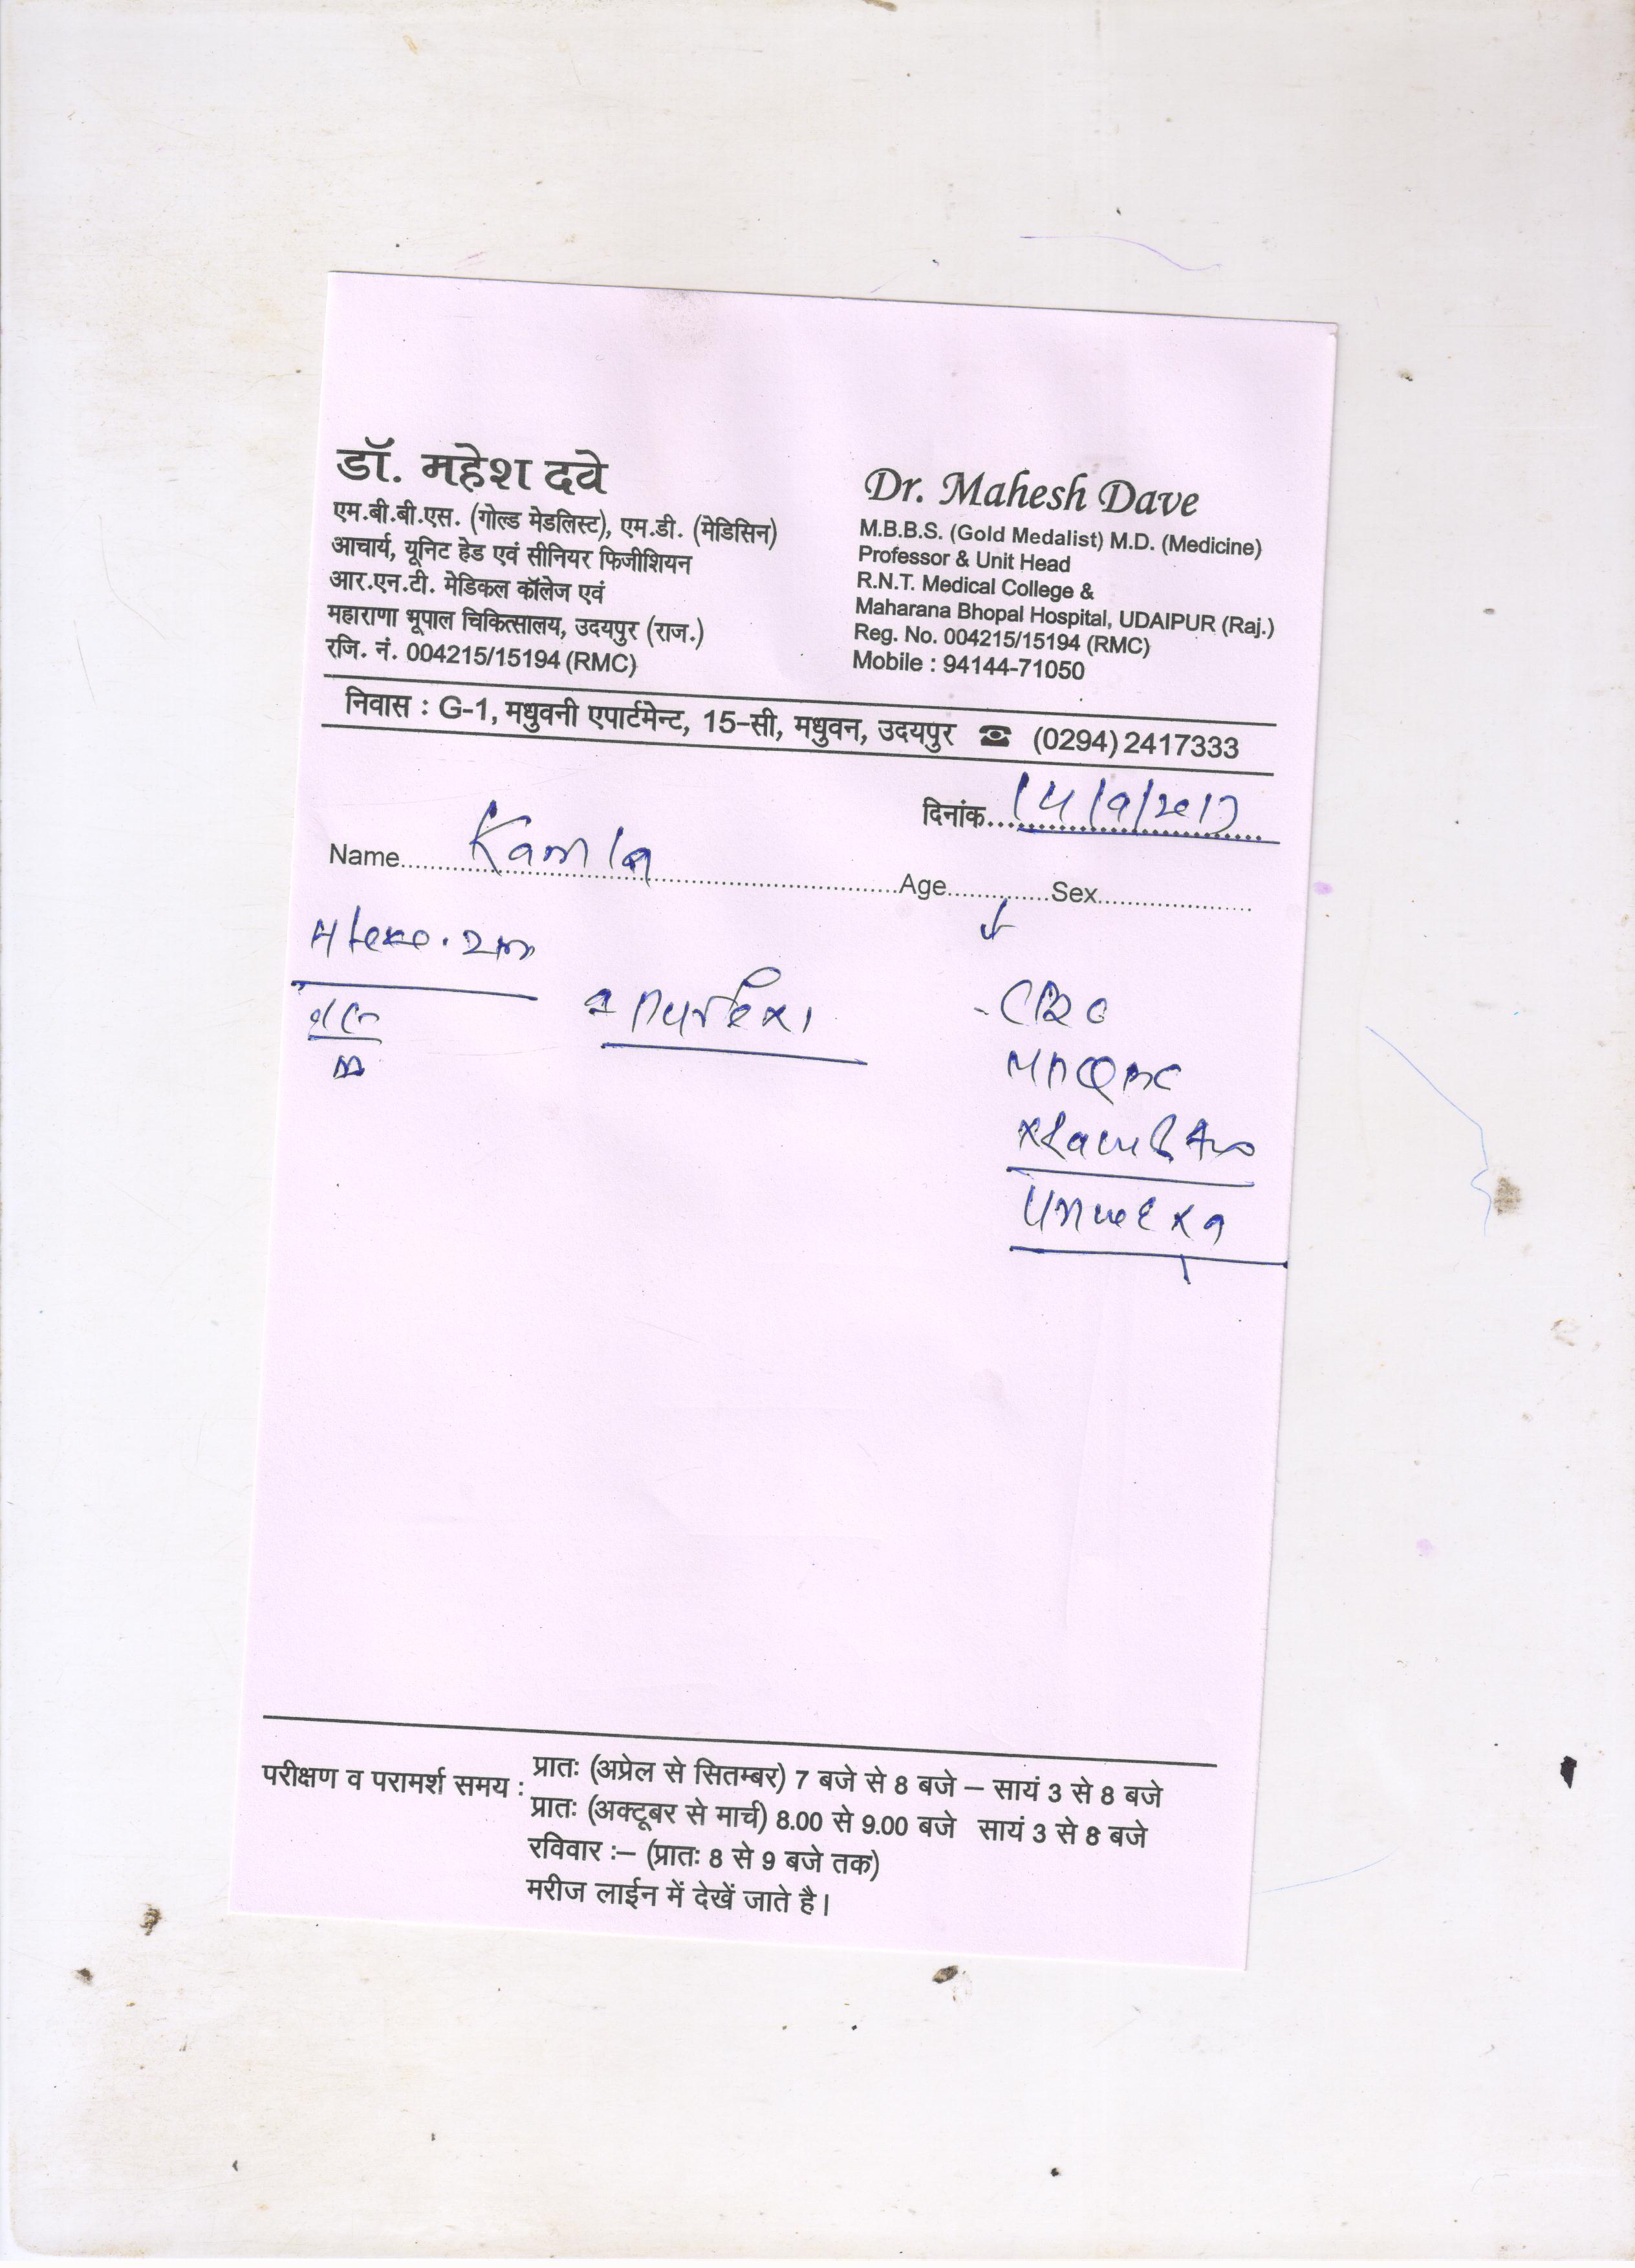 डॉ. महेश दवे
एम.बी.बी.एस. (गोल्ड मेडलिस्ट), एम.डी. (मेडिसिन)
आचार्य, यूनिट हेड एवं सीनियर फिजीशियन
आर.एन.टी. मेडिकल कॉलेज एवं
महाराणा भूपाल चिकित्सालय, उदयपुर (राज.)
रजि. नं. 004215/15194 (RMC)
Dr. Mahesh Dave
M.B.B.S. (Gold Medalist) M.D. (Medicine)
Professor & Unit Head
R.N.T. Medical College &
Maharana Bhopal Hospital, UDAIPUR (Raj.)
Reg. No. 004215/15194 (RMC)
Mobile : 94144-71050
निवास : G-1, मधुवनी एपार्टमेन्ट, 15-सी, मधुवन, उदयपुर ☎ (0294) 2417333
दिनांक 14/9/2017
Name Kamla Age Sex
परीक्षण व परामर्श समय : प्रातः (अप्रेल से सितम्बर) 7 बजे से 8 बजे – सायं 3 से 8 बजे
प्रातः (अक्टूबर से मार्च) 8.00 से 9.00 बजे सायं 3 से 8 बजे
रविवार :– (प्रातः 8 से 9 बजे तक)
मरीज लाईन में देखें जाते है।